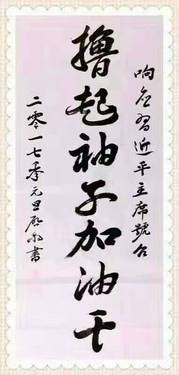 响应习近平主席號召
撸起袖子加油干
二零一七年元旦 書